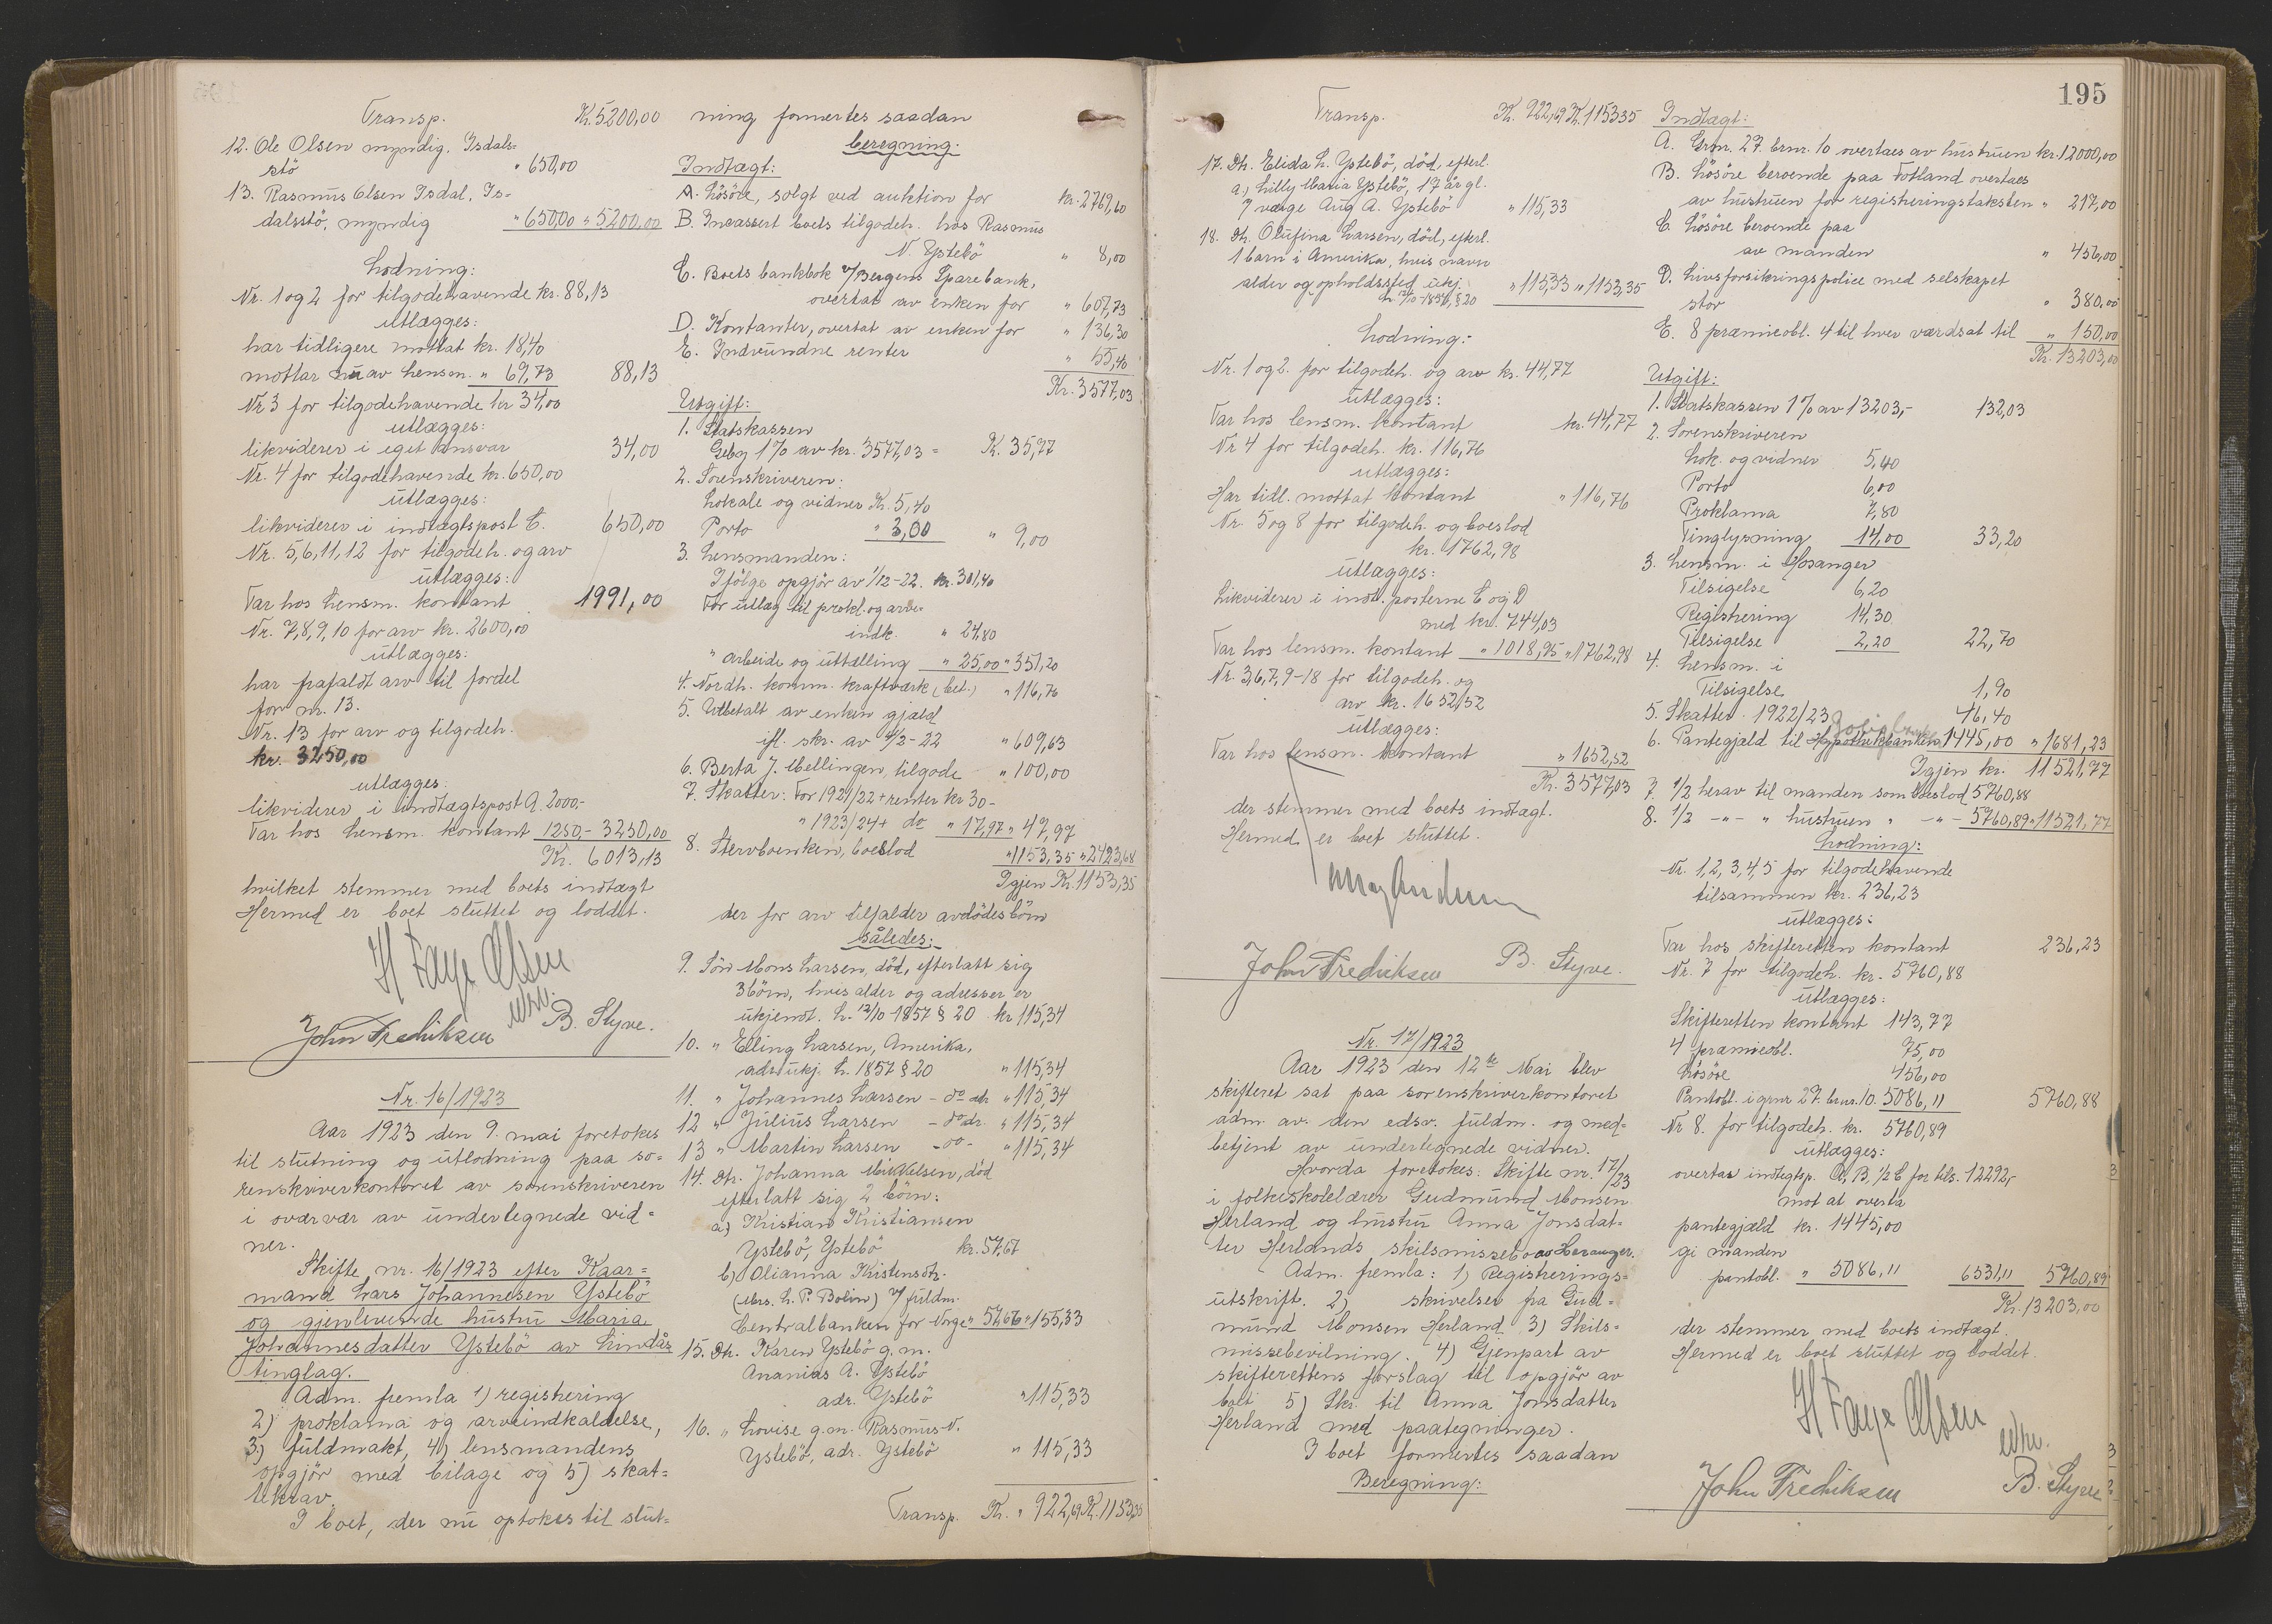 Transp. Kr. 5200,00
12. Ole Olsen myndig, Isdals=
stö " 650,00
13. Rasmus Olsen Isdal, Is=
dalsstö, myndig " 650,00 " 5200,00
Lodning:
Nr. 1 og 2 for tilgodehavende kr. 88,13
utlægges:
har tidligere mottat kr. 18,40
mottar nu av lensm. " 69,73 88,13
Nr 3 for tilgodehavende kr 34,00
utlægges:
likviderer i eget ansvar 34,00
Nr. 4 for tilgodehavende kr. 650,00
utlægges:
likviderer i indtægtspost C. 650,00
Nr. 5,6,11,12 for tilgodeh. og arv
utlægges:
Tar hos lensm. kontant 1991,00
Nr. 7,8,9,10 for arv kr. 2600,00
utlægges:
har frafaldt arv til fordel
for nr. 13.
Nr. 13 for arv og tilgodeh.
kr. 3250,00
utlægges:
likviderer i indtægtspost A. 2000,-
Tar hos lensm. kontant 1250,- 3250,00
Kr. 6013,13
hvilket stemmer med boets indtægt
Hermed er boet sluttet og loddet.
H Faye Olsen
edsv.
John Fredriksen B. Styve.
Nr. 16/1923
Aar 1923 den 9. mai foretokes
til slutning og utlodning paa so=
renskriverkontoret av sorenskriveren
i overvær av undertegnede vid=
ner.
Skifte nr. 16/1923 efter Kaar=
mand Lars Johannesen Ystebö
og gjenlevende hustru Maria
Johannesdatter Ystebö av Lindås
tinglag.
Adm. fremla 1) registrering
2) proklama og arveindkaldelse,
3) fuldmakt, 4) lensmandens
opgjör med bilage og 5) skat=
tekrav.
I boet, der nu optokes til slut=
ning formertes saadan
beregning.
Indtægt:
A. Lösöre, solgt ved auktion for kr. 2769,60
B. Incassert boets tilgodeh. hos Rasmus
N. Ystebö " 8,00
C. Boets bankbok i/Bergens Sparebank,
overtat av enken for " 607,73
D. Kontanter, overtat av enken for " 136,30
E. Indvundne renter " 55,40
Kr. 3577,03
Utgift:
1. Statskassen
Geby 1% av kr. 3577,03 = K. 35,77
2. Sorenskriveren:
Lokale og vidner K. 5,40
Porto " 3,60 " 9,00
3. Lensmanden:
Ifölge opgjör av 1/12-22. kr. 301,40
For utlæg til prokl. og arve-
indk. " 24,80
" arbeide og uttælling " 25,00 " 351,20
4. Nordh. komm. kraftværk (bet.) " 116,76
5. Utbetalt av enken gjæld
ifl. skr. av 4/2-22 " 609,63
6. Berta J. Mellingen, tilgode " 100,00
7. Skatter: For 1921/22 + renter kr 30-
" 1923/24 + do " 17,97 " 47,97
8. Stervboenken, boeslod " 1153,35 " 2423,68
Igjen Kr. 1153,35
der for arv tilfalder avdödes börn
således:
9. Sön Mons Larsen, död, efterlatt sig
3 börn, hvis alder og adresser er
ukjendt. L. 12/10 1857 § 20 kr 115,34
10. " Elling Larsen, Amerika,
adr. ukj. L. 1857 § 20 " 115,34
11. " Johannes Larsen - do adr " 115,34
12 " Julius Larsen - do adr. " 115,34
13 " Martin Larsen -oo- " 115,34
14. Dtr. Johanna Mikkelsen, död
efterlatt sig 2 börn:
a) Kristian Kristiansen
Ystebö, Ystebö kr. 57,67
b) Olianna Kristensdtr.
(Mrs. L. P. Bolin) V/ fuldm.
Centralbanken for Norge " 57,66 " 155,33
15. Dtr. Karen Ystebö g. m.
Ananias A. Ystebö
adr. Ystebö " 115,33
16. " Lovise g.m. Rasmus N.
Ystebö, adr. Ystebö " 115,33
Transp. Kr. " 922,69 K. 1153,35
195
Transp. Kr. 922,69 K. 1153 35
17. Dtr. Elida L. Ystebö, död, efterl.
a.) Lilly Maria Ystebö, 17 år gl.
V værge Aug A. Ystebö " 115,33
18. Dtr. Olufina Larsen, död, efterl.
1 barn i Amerika, hvis navn
alder og opholdssted ukj. " 115,33 " 1153,35
L. 12/10 1857, § 20
Lodning:
Nr. 1 og 2. for tilgodeh. og arv kr. 44,77
utlægges:
Tar hos lensm. kontant kr. 44,77
Nr 4 for tilgodeh. kr. 116,76
utlægges:
Har tidl. mottat kontant " 116,76
Nr. 5 og 8 for tilgodeh. og boeslod
kr. 1762,98
utlægges:
Likviderer i indt. posterne C og D
med kr. 744,03
Tar hos lensm. kontant " 1018,95 " 1762,98
Nr. 3,6,7,9-18 for tilgodeh. og
arv kr. 1652,52
utlægges:
Tar hos lensm. kontant " 1652,52
Kr. 3577,03
der stemmer med boets indtægt.
Hermed er boet sluttet.
John Fredriksen B. Styve.
Nr. 17/1923
Aar 1923 den 12te Mai blev
skifteret sat paa sorenskriverkontoret
adm. av. den edsv. fuldm. og med=
betjent av undertegnede vidner.
Hvorda foretokes: Skifte nr. 17/23
i folkeskolelærer Gudmund Monsen
Herland og hustru Anna Jonsdat=
ter Herlands skilsmissebo av Hosanger.
Adm. fremla: 1) Registrerings=
utskrift. 2) skrivelser fra Gud=
mund Monsen Herland. 3) Skils=
missebevilning. 4) Gjenpart av
skifterettens forslag til opgjör av
boet 5) Skr. til Anna Jonsdatter
Herland med paategninger.
I boet formertes saadan
Beregning:
Indtægt:
A. Grnr. 27. brnr. 10 overtaes av hustruen kr. 12000,00
B. Lösöre beroende paa Fotland overtaes
av hustruen for registreringstaksten " 217,00
C. Lösöre beroende paa
av manden " 456,00
D. Livsforsikringspolice med selskapet
stor " 380,00
E. 8 præmieobl. 4 til hver værdsat til " 150,00
Kr. 13203,00
Utgift:
1. Statskassen 1% av 13203,- 132,03
2. Sorenskriveren
Lok. og vidner 5,40
Porto 6,00
Proklama 7,80
Tinglysning 14,00 33,20
3. Lensm. i Hosanger
Tilsigelse 6,20
Registrering 14,30
Tilsigelse 2,20 22,70
4. Lensm. i
Tilsigelse 1,90
5. Skatter 1922/23 46,40
6. Pantegjæld til Hypothekbanken 1445,00 " 1681,23
Igjen kr. 11521,77
7 1/2 herav til manden som boeslod 5760,88
8. 1/2 -"- " hustruen " -"- 5760,89 " 11521,77
Lodning:
Nr. 1,2,3,4,5 for tilgodehavende
tilsammen kr. 236,23
utlægges:
Tar hos skifteretten kontant 236,23
Nr. 7 for tilgodeh. kr. 5760,88
utlægges:
Skifteretten kontant 143,77
4 præmieobl. 75,00
Lösöre 456,00
Pantobl. i grnr 27. brnr. 10. 5086,11 5760,88
Nr 8. for tilgodeh. kr. 5760,89
utlægges:
overtar indtegtsp. A, B, 1/2 E for tils. 12292,-
mot at overta
pantegjæld kr. 1445,00
gi manden
pantobl. " 5086,11 6531,11 5760,89
Kr. 13203,00
der stemmer med boets indtægt.
Hermed er boet sluttet og loddet.
H Faye Olsen
edsv.
John Fredriksen B. Styve